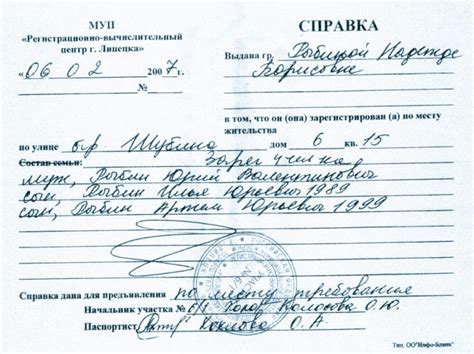 МУП
«Регистрационно-вычислительный
центр г. Липецка»
«06» 02 2007 г.
№
СПРАВКА
Выдана гр. Рыблиной Надежде
Борисовне
в том, что он (она) зарегистрирован (а) по месту
жительства
по улице б-р Шубина дом 6 кв. 15
Состав семьи: Зарег 4 человека
муж, Рыблин Юрий Валентинович
сын, Рыблин Илья Юрьевич 1989
сын, Рыблин Артем Юрьевич 1999
Справка дана для предъявления по месту требования
Начальник участка Колосова О.Ю.
Паспортист Козлова О. А.
Тип. ОО"Инфо-Бланк"